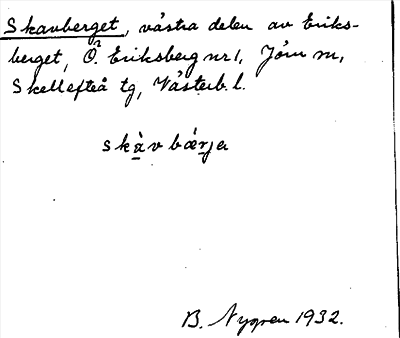 Skavberget, västra delen av Eriks-
berget, Ö. Eriksberg nr 1, Jörn sn,
Skellefteå tg, Västerb. l.
skàvbærja
B. Nygren 1932.